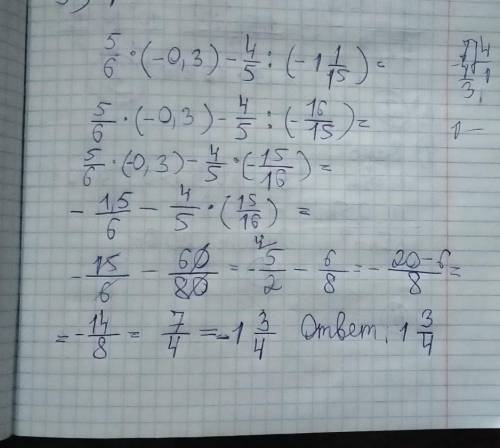 5/6 · (-0,3) - 4/5 : (-1 1/15) =
5/6 · (-0,3) - 4/5 : (-16/15) =
5/6 · (-0,3) - 4/5 · (-15/16) =
- 1,5/6 - 4/5 · (15/16) =
- 15/6 - 60/80 = - 5/2 - 6/8 = - 20-6/8 =
= - 14/8 = 7/4 = -1 3/4 Ответ, 1 3/4
7 4
4 1
3,
1-